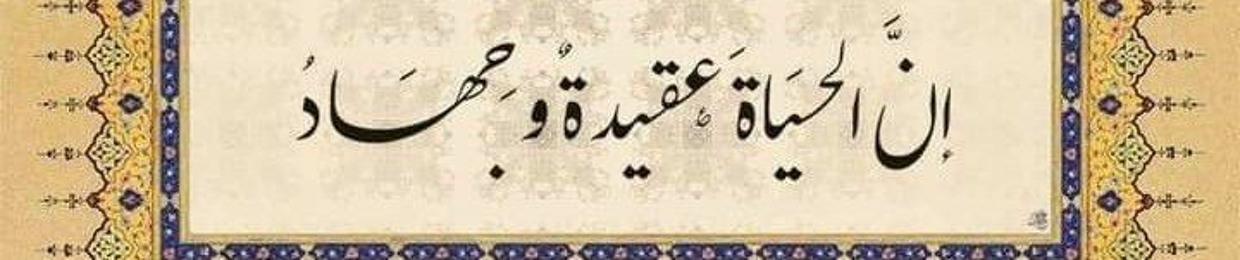 إنَّ الحَيَاةَ عَقيدةٌ وجِهَادُ